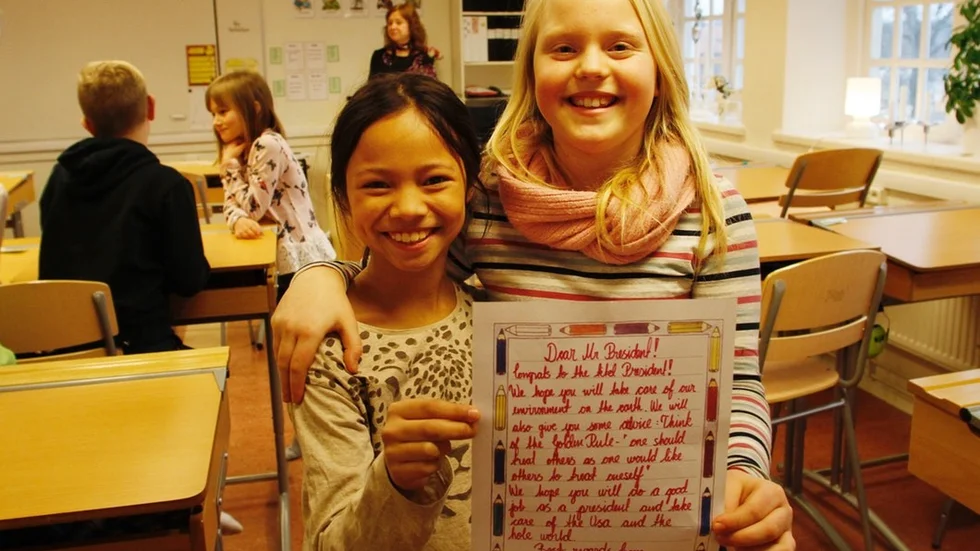 Dear Mr President!
Congrats to the titel President!
We hope you will take care of our
environment on the earth. We will
also give you some advice: Think
of the Golden Rule-"one should
treat others as one would like
others to treat oneself"
We hope you will do a good
job as a president and take
care of the Usa and the
hole world
Best regards from